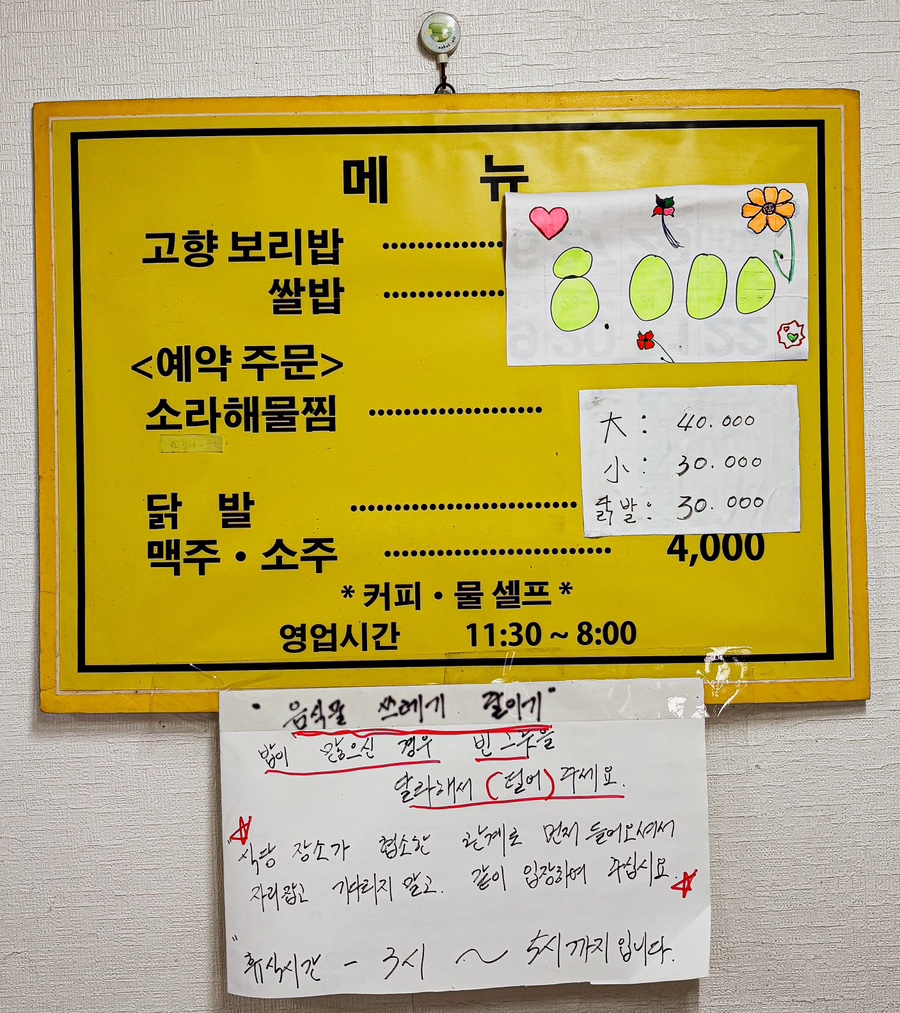 메 뉴
고향 보리밥 ··············
쌀밥 ··············
8.000
<예약 주문>
소라해물찜 ····················
大 : 40.000
小 : 30.000
닭발 : 30.000
닭 발 ··························
맥주·소주 ·························· 4,000
*커피·물 셀프*
영업시간 11:30 ~ 8:00
" 음식물 쓰레기 줄이기"
밥이 많으신 경우 빈그릇을
달라해서 (덜어) 주세요.
☆식당 장소가 협소한 관계로 먼저 들어오셔서
자리잡고 기다리지 말고. 같이 입장하여 주십시요.☆
"휴식시간 - 3시 ~ 5시까지 입니다.